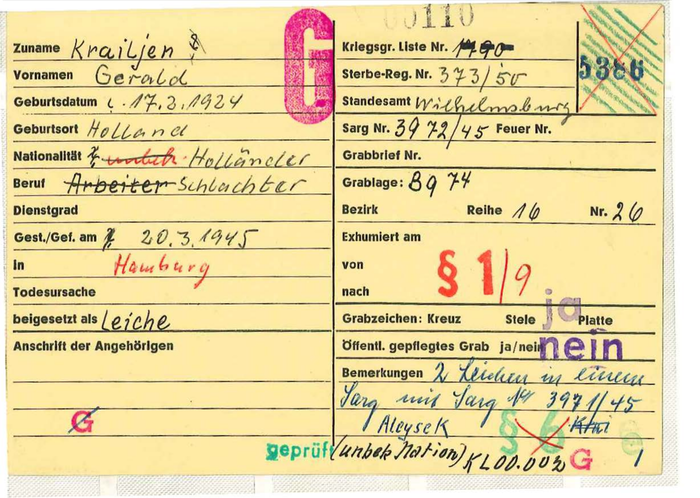 00110
G
Zuname Krailjen
Vornamen Gerald
Geburtsdatum 17.2.1924
Geburtsort Holland
Nationalität unbek. Holländer
Beruf Arbeiter Schlachter
Dienstgrad
Gest./Gef. am 20.3.1945
in Hamburg
Todesursache
beigesetzt als Leiche
Anschrift der Angehörigen
G
geprüft
Kriegsgr. Liste Nr. 1490
5386
Sterbe-Reg. Nr. 373/50
Standesamt Wilhelmsburg
Sarg Nr. 3972/45 Feuer Nr.
Grabbrief Nr.
Grablage: Bq 74
Bezirk Reihe 16 Nr. 26
Exhumiert am
von
nach
§ 1/9
Grabzeichen: Kreuz Stele Platte
ja
Öffentl. gepflegtes Grab ja/nein
nein
Bemerkungen 2 Leichen in einem
Sarg mit Sarg Nr 3971/45
Aleysek
§ 6
(unbek Nation) KL00.002 G 1